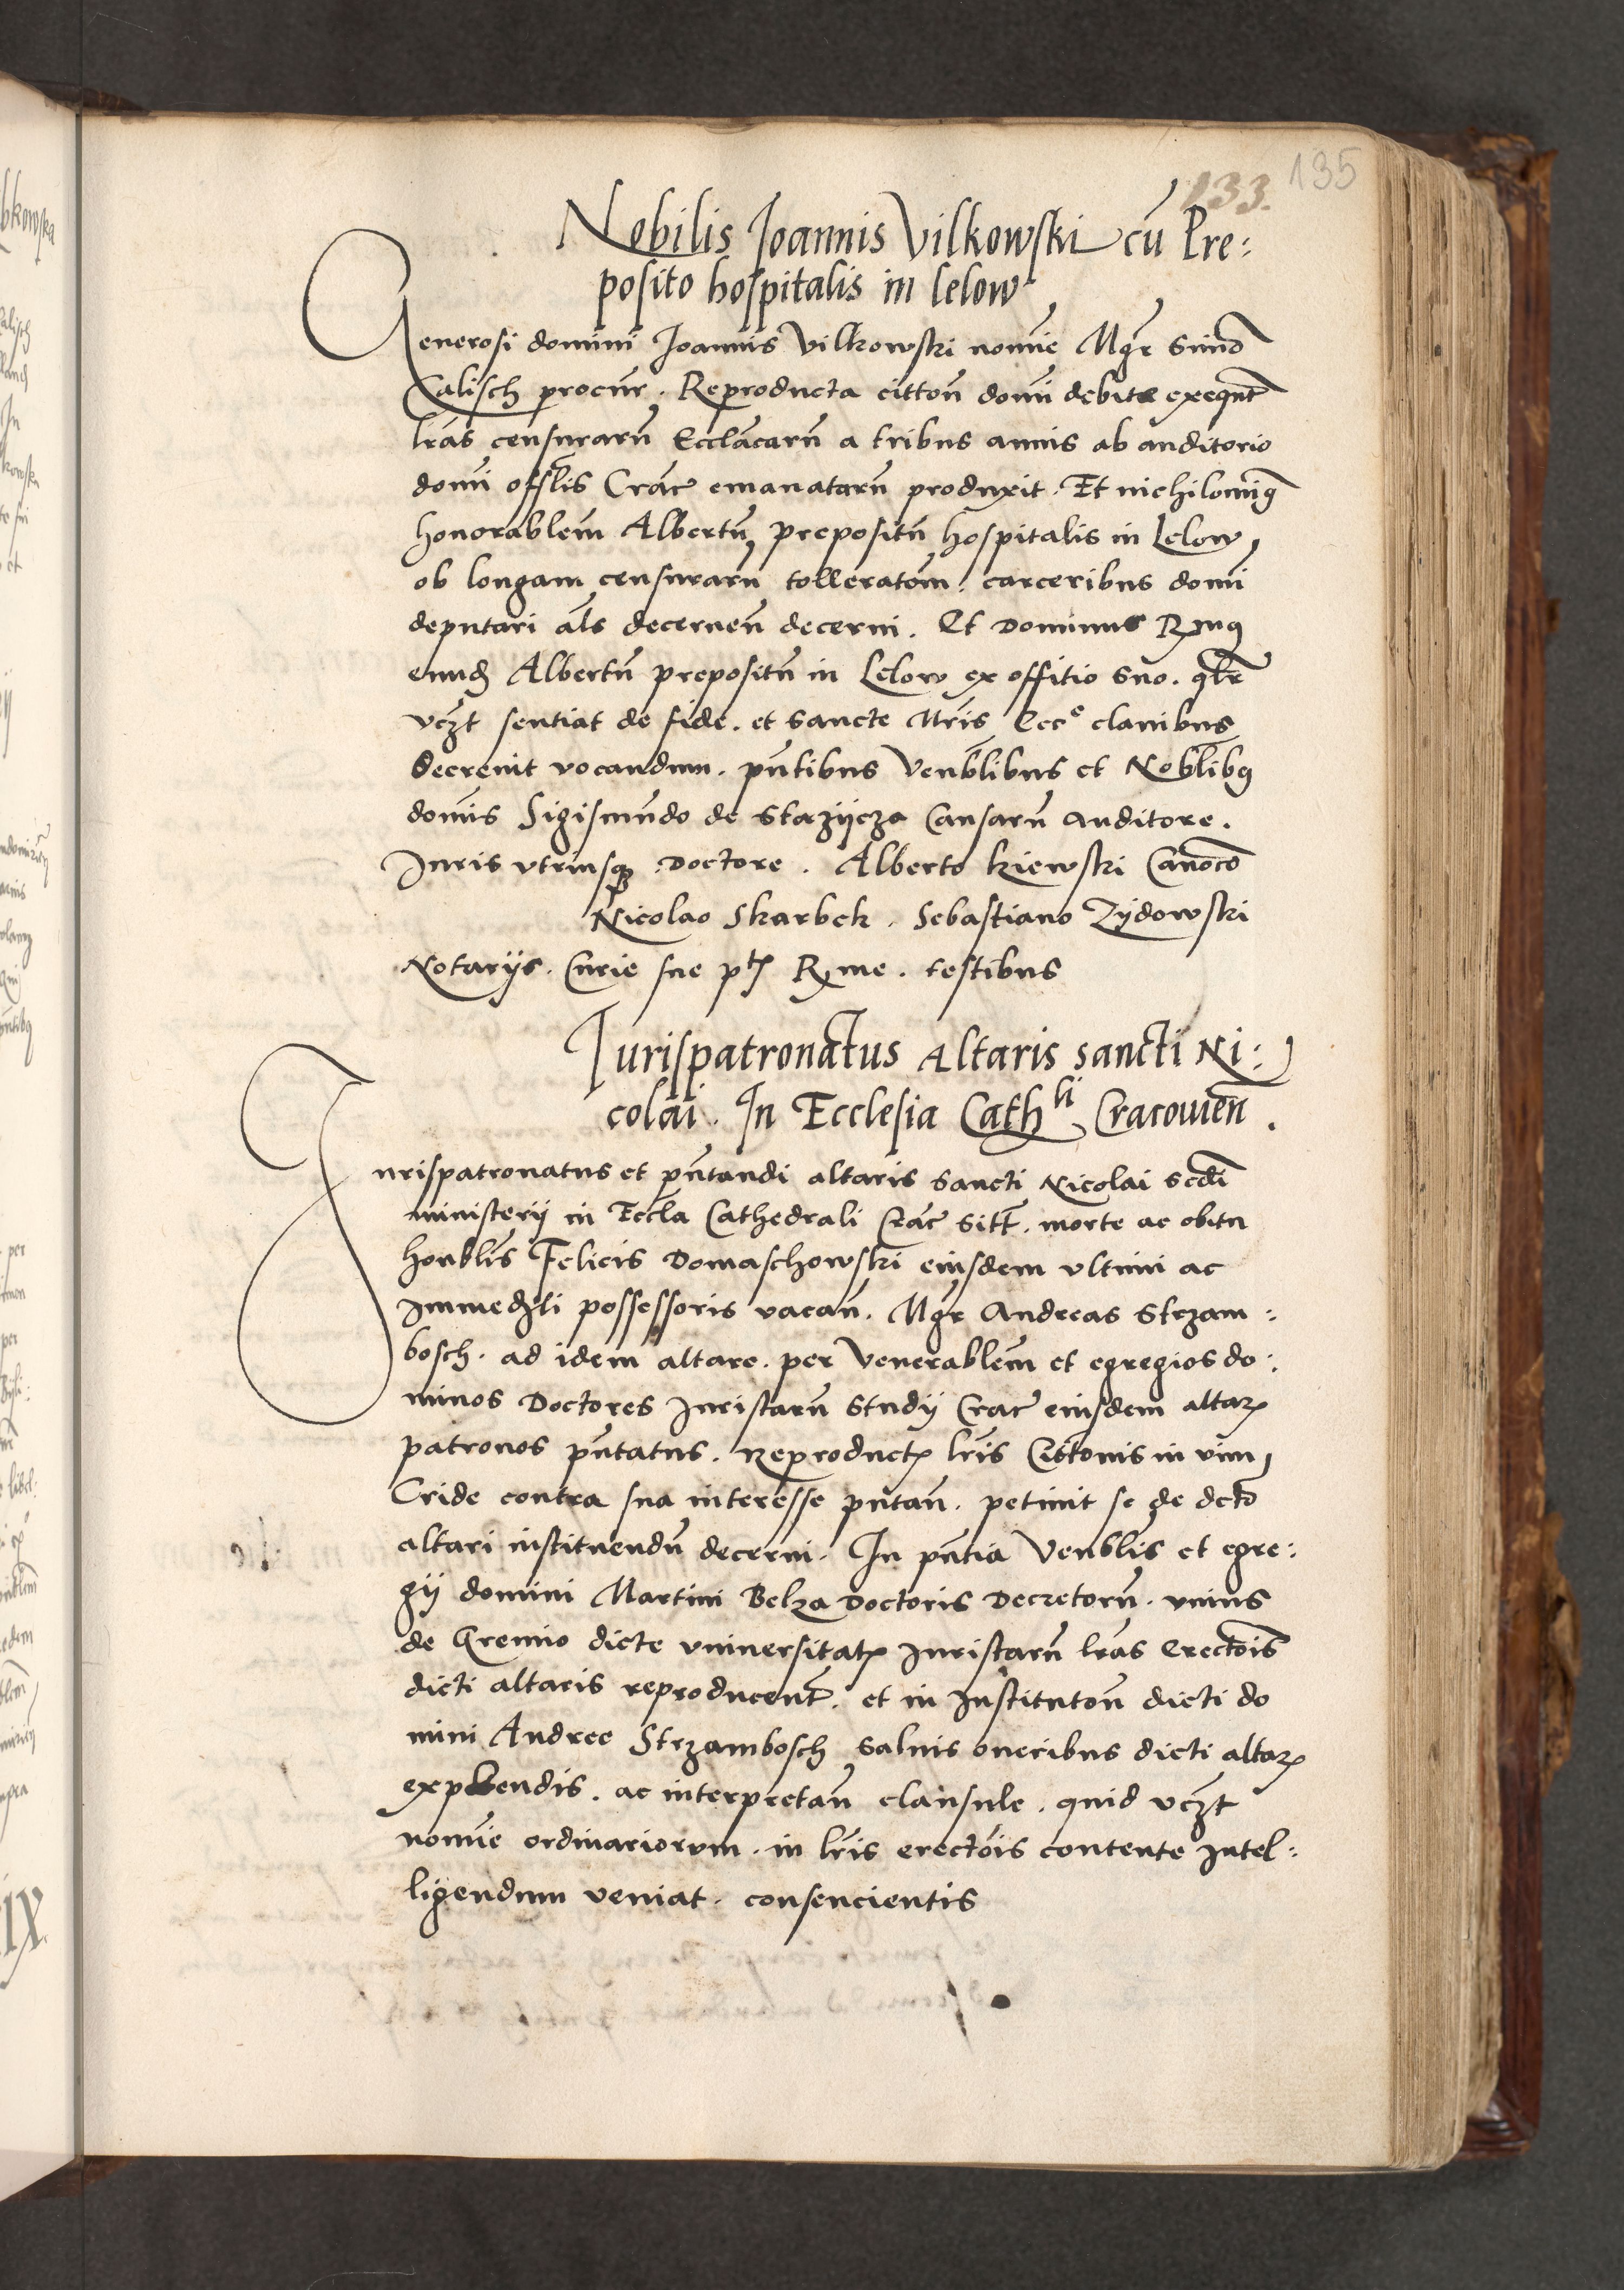 133. 135
Nobilis Joannis Vilkowski cū Pre:
posito hospitalis in lelow
Generosi domini Joannis Vilkowski nomīe Mgr̄ Simō
Calisch procūr. Reproducta cittoñ domī debite exequūt
lr̄as censurarū Eccl̄acarū a tribus annis ab auditorio
domī offslis Crac̄ emanatarū produxit. Et nichilomīq
honorablem̄ Albertū prepositū hospitalis in Lelow
ob longam censurarū tolleratom̄. carceribus domī
deputari al̄s decerneñ decerni. Et Dominus Rmq
eundꝫ Albertū prepositū in Lelow ex offitio suo. qlr̄
vcꝫt sentiat de fide. et sancte Mr̄is Ecce clauibus
decreuit vocandum. pn̄tibus Venbl̄ibus et Nobl̄ibq
domīs Sigismūndo de Starzijcza Causarū auditore.
Juris vtriusqꝫ Doctore. Alberto kiewski Canōco
Nicolao Skarbek. Sebastiano Zydowski
Notarijs. Curie sue ptꝭ Rme. testibus
Jurispatronatus Altaris sancti Ni:
colai. In Ecclesia Cathli Cracouien̄.
Jurispatronatus et pn̄tandi altaris sancti Nicolai scdī
ministerij in Eccl̄a Cathedrali Crac̄ sitt̄. morte ac obitu
honbl̄is Felicis Domaschowski eiusdem vltimi ac
immedꝫti possessoris vacan̄. Mgr̄ Andreas Strzam:
bosch. ad idem altare. per Venerablem̄ et egregios do:
minos Doctores Juristarū Studij Crac̄ eiusdem altarꝭ
patronos pn̄tatus. Reproductꝭ lr̄is Cittonis in vim
Cride contra sua interesse pūtan̄. petiuit se de dcto
altari instituendū decerni. In pn̄tia Venbl̄is et egre:
gij domini Martini Belza Doctoris Decretorū. vnius
de Gremio dicte vniuersitatꝭ Juristarū lr̄as Erectoīs
dicti altaris reproducent̄. et in Institutoñ dicti do
mini Andree Strzambosch saluis oneribus dicti altarꝭ
expl̄endis. ac interpretan̄ clausule. quid vcꝫt
nomīe ordinariorum. in lr̄is erectoīs contente Intel:
ligendum veniat. consencientis